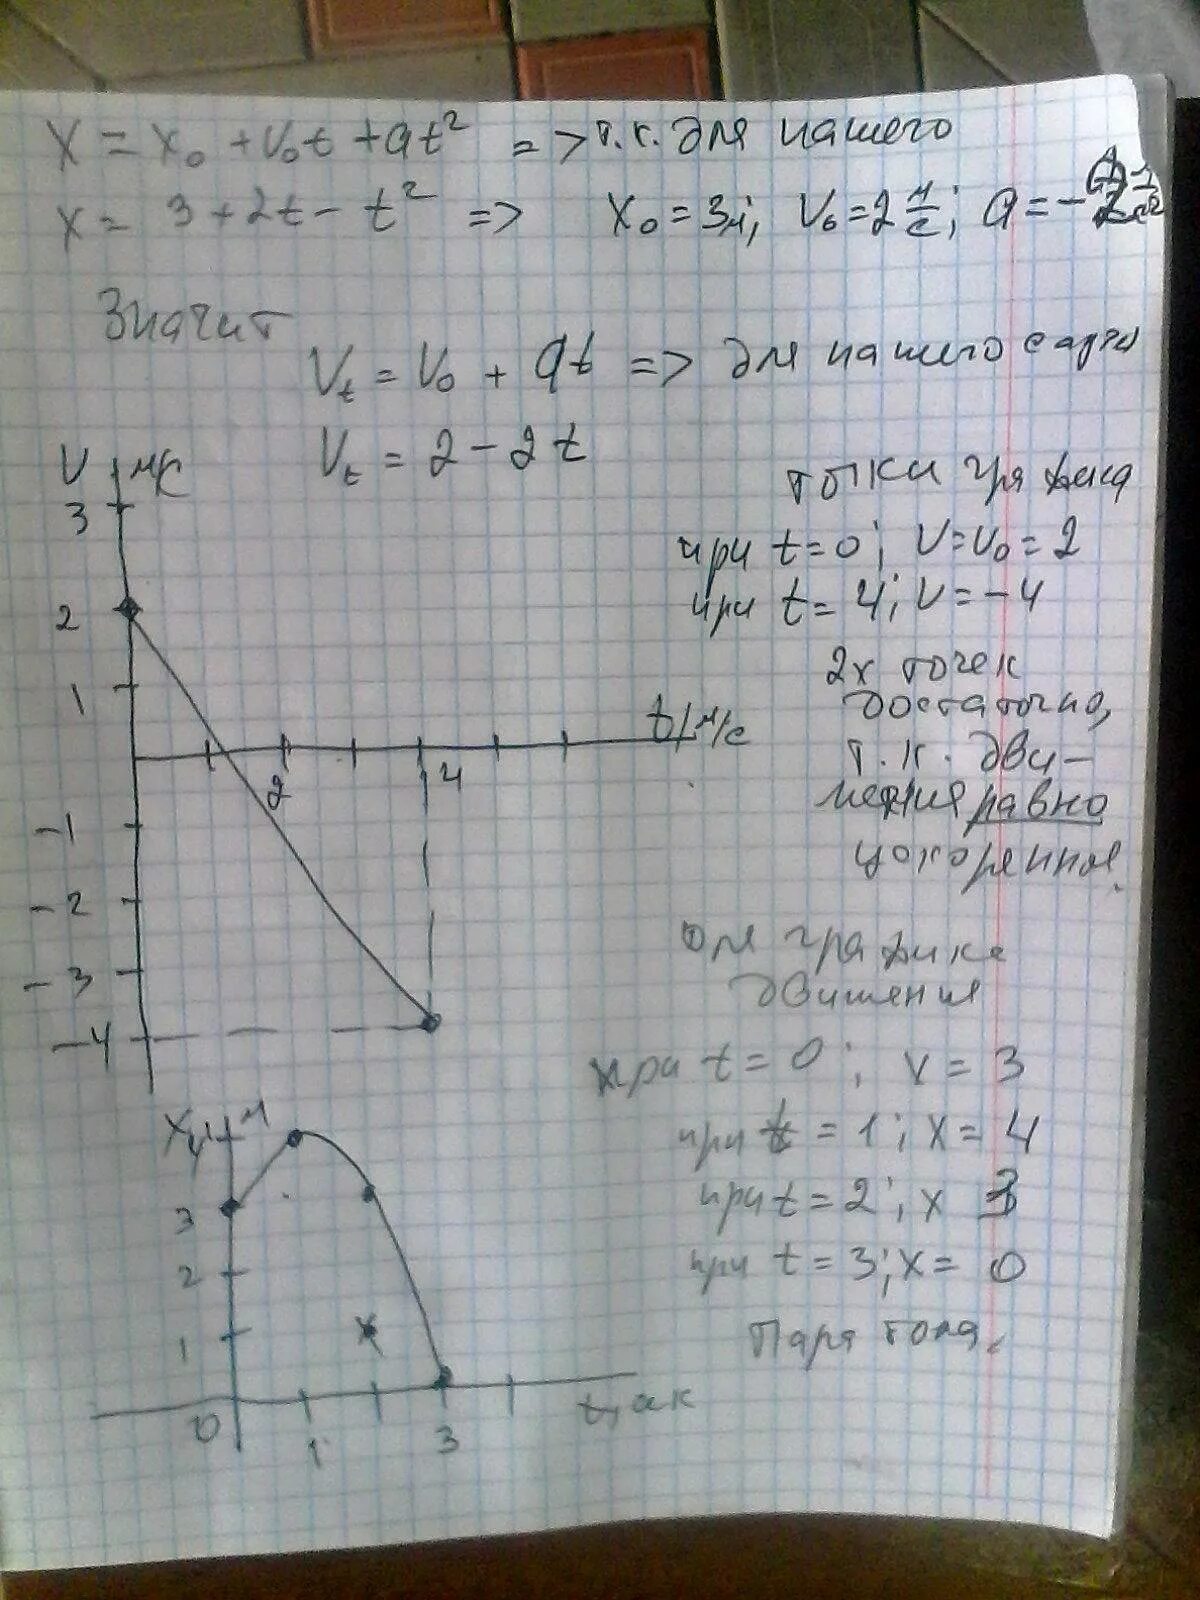 X = X₀ + V₀t + at² => т.к. для нашего
X = 3 + 2t - t² => X₀ = 3м; V₀ = 2 м/с; a = -
Значит
Vₜ = V₀ + at => для нашего
Vₜ = 2 - 2t
V м/с
3
2
1
-1
-2
-3
-4
2
4
t, м/с
точки графика
при t = 0; V = V₀ = 2
при t = 4; V = -4
2х точек
достаточно,
т.к. дви-
жения равно
ускоренное.
для графика
движения
при t = 0; x = 3
при t = 1; x = 4
при t = 2; x 3
при t = 3; x = 0
X, м
4
3
2
1
0
1
3
t, сек